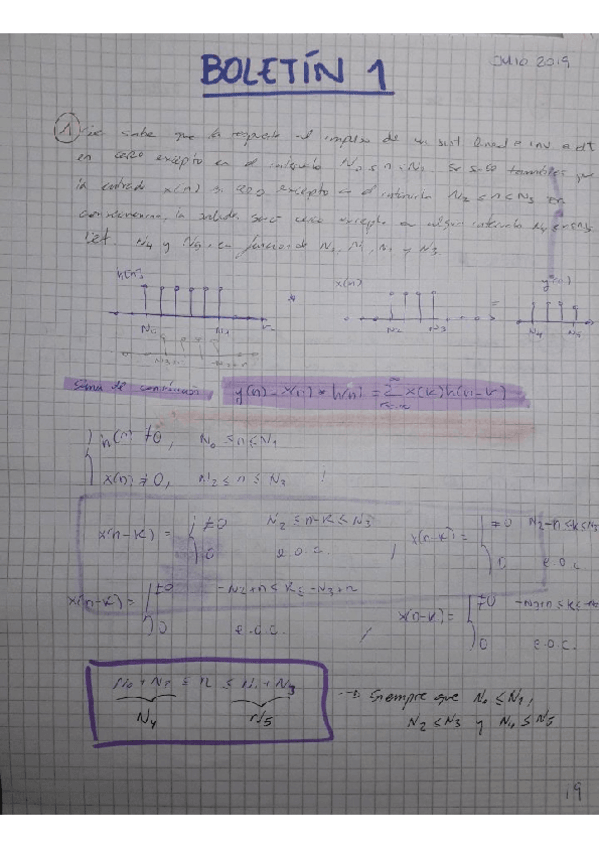 JULIO 2019
BOLETÍN 1
1 se sabe que la respuesta al impulso de un sist. lineal e inv
es cero excepto en el intervalo N0 ≤ n ≤ N1. Se sabe también que
la entrada x(n) es cero excepto en el intervalo N2 ≤ n ≤ N3
la salida será cero excepto en algún intervalo
N4 y N5 en función de N0, N1, N2 y N3.
h[n] x(n) y(n)
N0 N1 * N2 N3 = N4 N5
Suma de convolución y(n) = x(n) * h(n) = ∑ x(k) h(n-k)
h(n) ≠ 0, N0 ≤ n ≤ N1
x(n) ≠ 0, N2 ≤ n ≤ N3
x(n-k) = ≠0 N2 ≤ n-k ≤ N3 x(n-k) = ≠0
0 E.O.C. / 0 E.O.C.
x(n-k) = ≠0 x(n-k) = ≠0
0 E.O.C. / 0 E.O.C.
N0 + N2 ≤ n ≤ N1 + N3 → Siempre que N0 ≤ N1,
N4 N5 N2 ≤ N3 y N4 ≤ N5
19